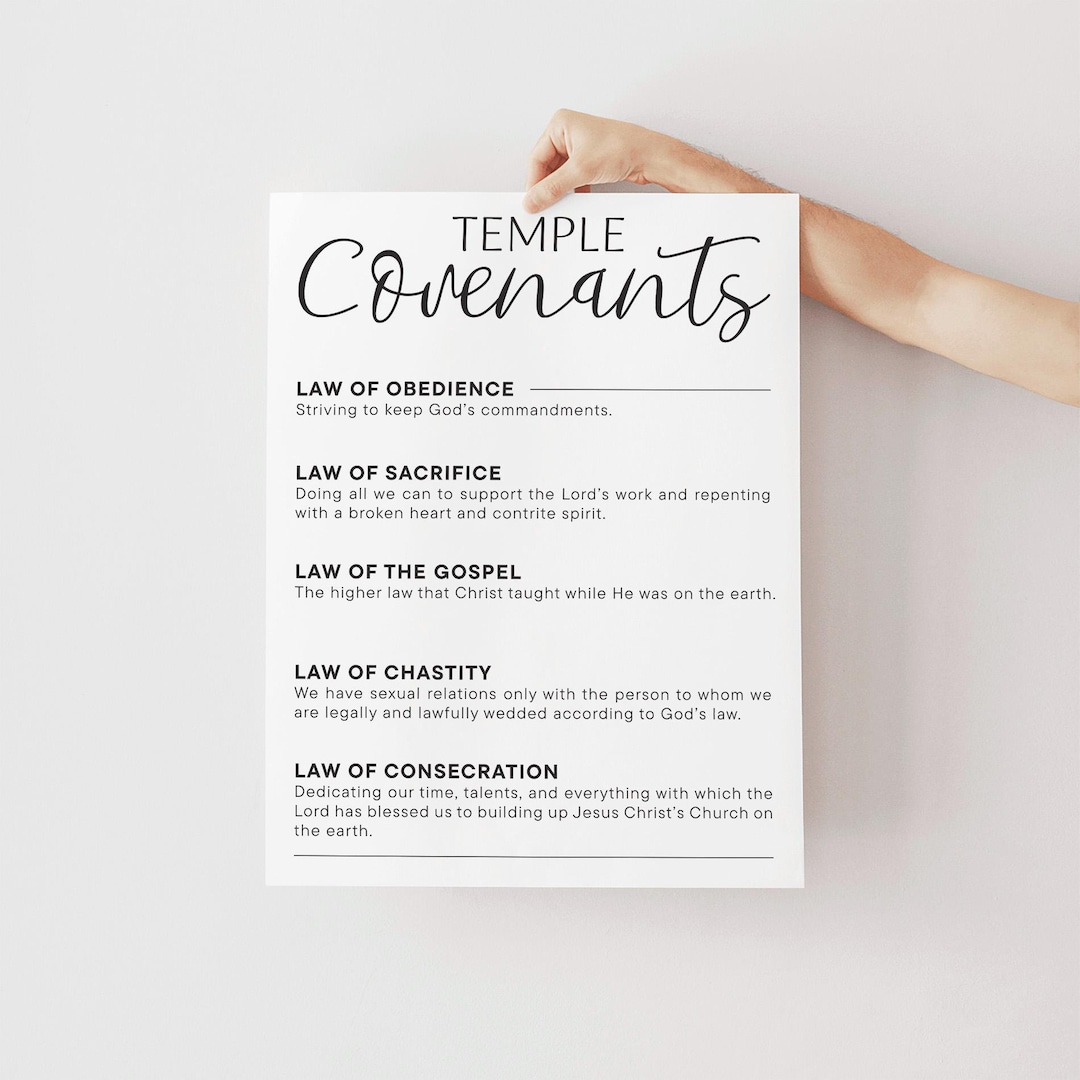 TEMPLE
Covenants
LAW OF OBEDIENCE
Striving to keep God's commandments.
LAW OF SACRIFICE
Doing all we can to support the Lord's work and repenting
with a broken heart and contrite spirit.
LAW OF THE GOSPEL
The higher law that Christ taught while He was on the earth.
LAW OF CHASTITY
We have sexual relations only with the person to whom we
are legally and lawfully wedded according to God's law.
LAW OF CONSECRATION
Dedicating our time, talents, and everything with which the
Lord has blessed us to building up Jesus Christ's Church on
the earth.